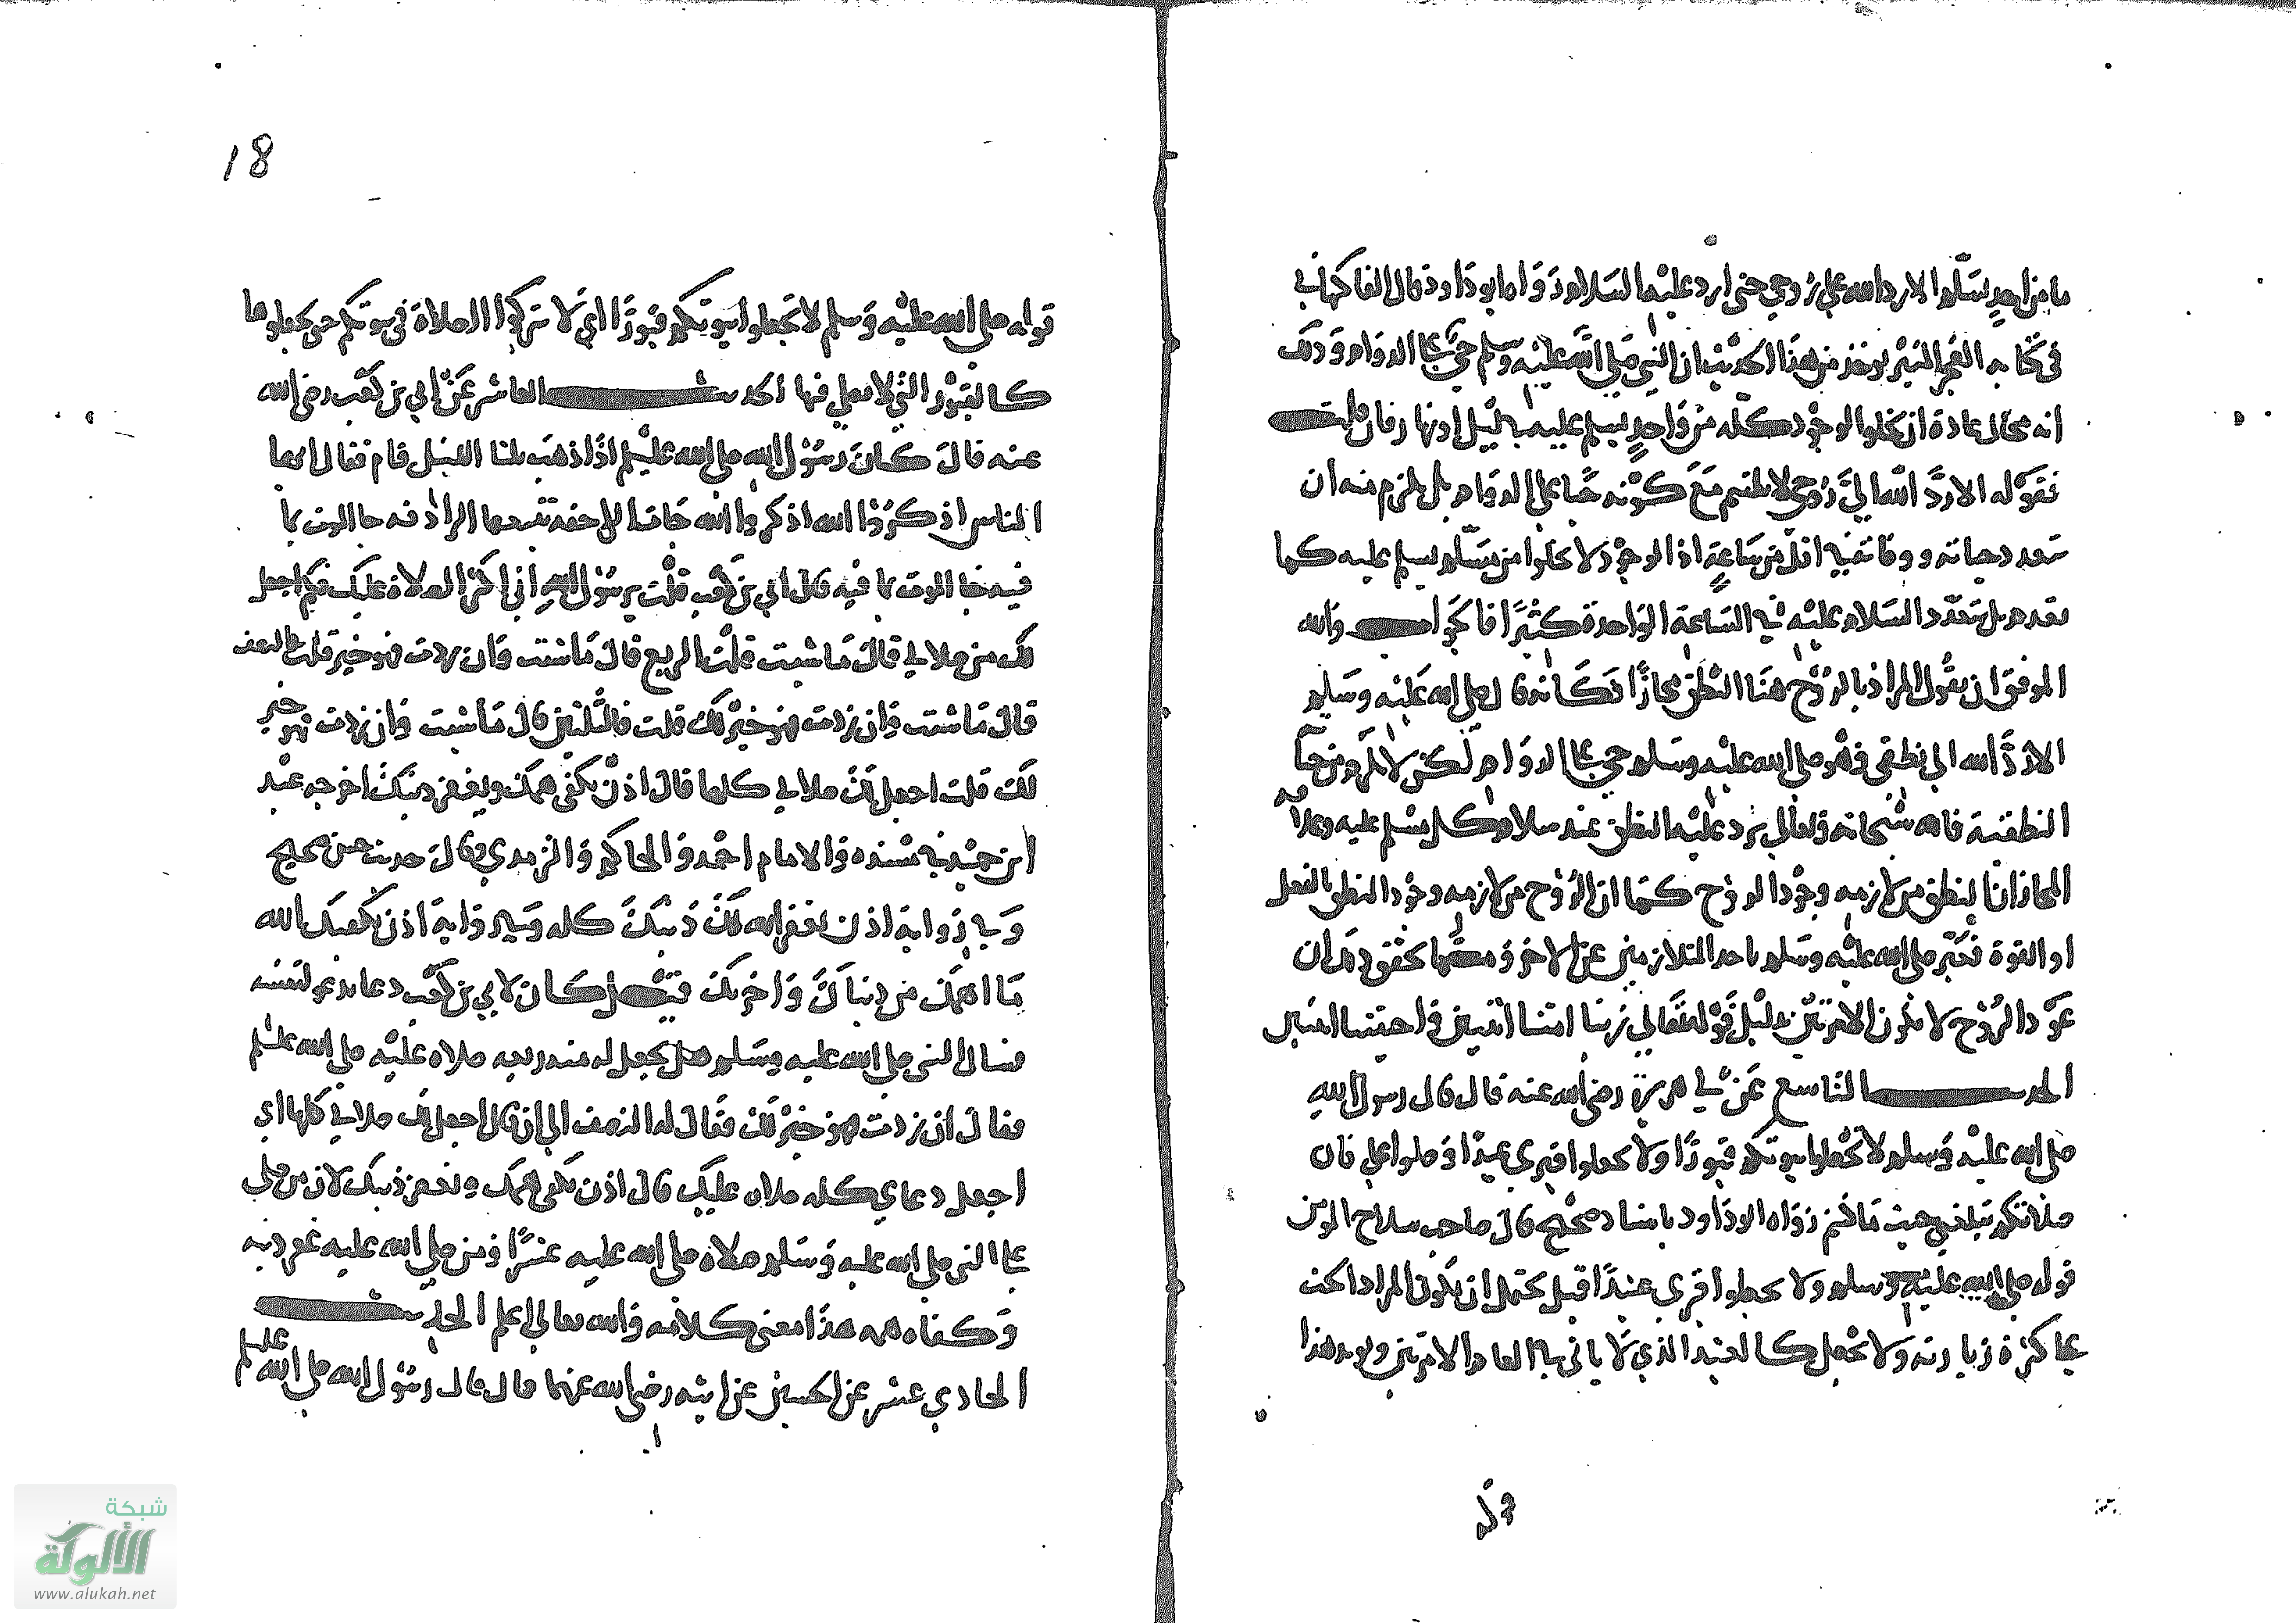 ما من احد يسلم الا رد الله علي روحي حتى ارد عليه السلام رواه ابو داود قال الفاكهاني
في كتابه الفجر المنير يوخذ من هذا الحديث ان النبي صلى الله عليه وسلم حي على الدوام وذلك
انه محال عادة ان يخلو الوجود كله من واحد يسلم عليه في ليل او نهار فان قلت
فقوله الا رد الله الي روحي لا يلتئم مع كونه حيا على الدوام بل يلزم منه ان
تتعدد حياته ووفاته في اقل من ساعة اذ الوجود لا يخلوا من مسلم يسلم عليه كما
تقدم بل يتعدد السلام عليه في الساعة الواحدة كثيرا فالجواب والله
الموفق ان يقول المراد بالروح هنا النطق مجازا فكانه قال صلى الله عليه وسلم
الا رد الله الي نطقي فهو صلى الله عليه وسلم حي على الدوام لكن لا يلزم من حياته
النطق فالله سبحانه وتعالى يرد عليه النطق عند سلام كل مسلم عليه وعلاقة
المجاز ان النطق من لازمه وجود الروح كما ان الروح من لازمه وجود النطق بالفعل
او القوة فعبر صلى الله عليه وسلم باحد المتلازمين عن الاخر ومما يحقق ذلك ان
عود الروح لا يكون الا مرتين بدليل قوله تعالى ربنا امتنا اثنتين واحييتنا اثنتين
الحديث التاسع عن ابي هريرة رضي الله عنه قال قال رسول الله
صلى الله عليه وسلم لا تجعلوا بيوتكم قبورا ولا تجعلوا قبري عيدا وصلوا علي فان
صلاتكم تبلغني حيث ما كنتم رواه ابو داود باسناد صحيح قال صاحب سلاح المومن
قوله صلى الله عليه وسلم ولا تجعلوا قبري عيدا قيل يحتمل ان يكون المراد الحث
على كثرة زيارته ولا تجعل كالعيد الذي لا ياتي في العام الا مرتين ويويد هذا
قوله
18
قوله صلى الله عليه وسلم لا تجعلوا بيوتكم قبورا اي لا تتركوا الصلاة في بيوتكم حتى تجعلوها
كالقبور التي لا يصلى فيها الحديث العاشر عن ابي بن كعب رضي الله
عنه قال كان رسول الله صلى الله عليه وسلم اذا ذهب ثلثا الليل قام فقال ايها
الناس اذكروا الله اذكروا الله جات الراجفة تتبعها الرادفة جا الموت بما
فيه جا الموت بما فيه قال ابي بن كعب قلت يرسول الله اني اكثر الصلاة عليك فكم اجعل
لك من صلاتي قال ما شيت قلت الربع قال ما شئت وان زدت فهو خير قلت فالنصف
قال ما شئت وان زدت فهو خير لك قلت فالثلثين قال ما شيت وان زدت فهو خير
لك قلت اجعل لك صلاتي كلها قال اذن تكفى همك ويغفر ذنبك اخرجه عبد
ابن حميد في مسنده والامام احمد والحاكم والترمدي وقال حديث حسن صحيح
وفي رواية اذن يغفر الله لك ذنبك كله وفي رواية اذن يكفيك الله
ما اهمك من دنياك واخرتك قيل كان لابي بن كعب دعا يدعو لنفسه
فسال النبي صلى الله عليه وسلم هل يجعل له منه ربعه صلاة عليه صلى الله عليه وسلم
فقال ان زدت فهو خير لك فقال له النصف الى ان قال اجعل لك صلاتي كلها اي
اجعل دعاي كله صلاة عليك قال اذن تكفى همك ويغفر ذنبك لان من صلى
على النبي صلى الله عليه وسلم صلاة صلى الله عليه عشرا ومن صلى الله عليه غفر ذنبه
وكفاه همه هذا معنى كلامه والله تعالى اعلم الحديث
الحادي عشر عن الحسين عن ابيه رضي الله عنهما قال قال رسول الله صلى الله عليه وسلم
شبكة
الألوكة
www.alukah.net